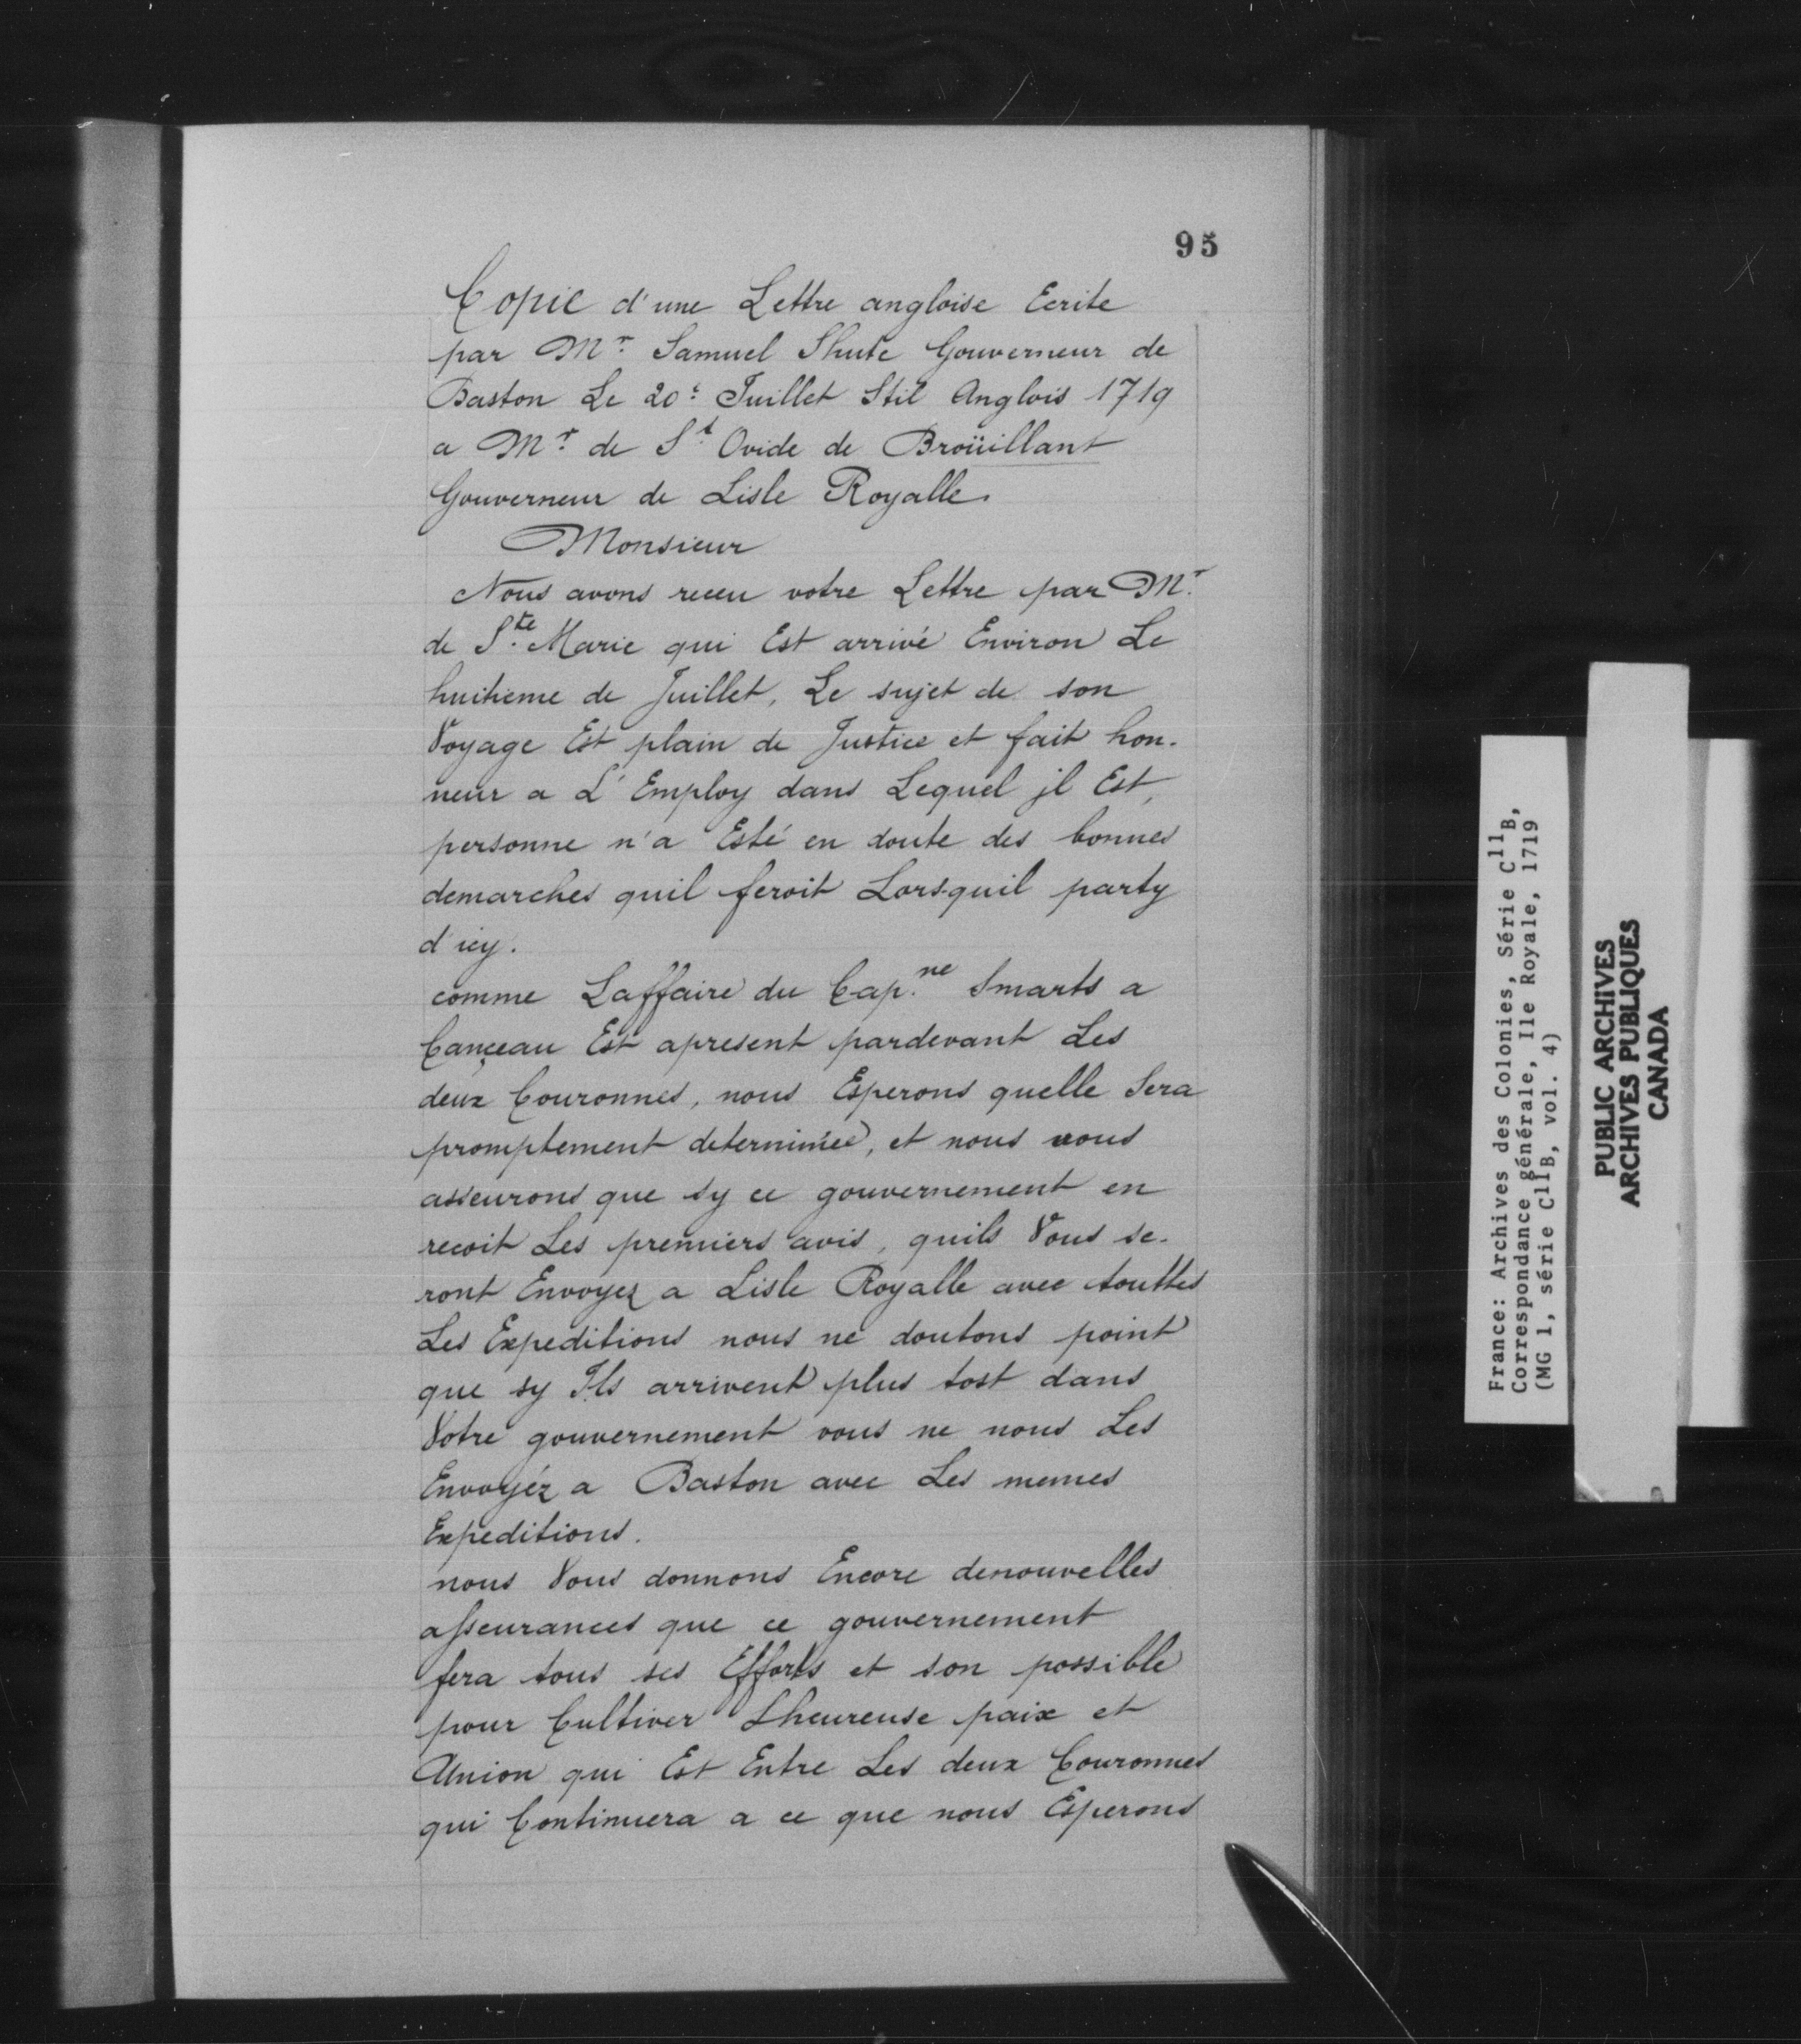 95
Copie d'une Lettre angloise Ecrite
par Mr. Samuel Shute Gouverneur de
Baston Le 20e Juillet Stil Anglois 1719
a Mr. de St. Ovide de Broüillant
Gouverneur de Lisle Royalle.
Monsieur
Nous avons receu votre Lettre par Mr.
de Ste. Marie qui Est arrivé Environ Le
huitieme de Juillet, Le sujet de son
Voyage Est plain de Justice et fait hon-
neur a L'Employ dans Lequel jl Est,
personne n'a Esté en doute des bonnes
demarches quil feroit Lorsquil party
d'icy.
comme Laffaire du Capne. Smarts a
Cançeau Est apresent pardevant Les
deux Couronnes, nous Esperons quelle Sera
promptement determinée, et nous vous
asseurons que sy ce gouvernement en
recoit Les premiers avis, quils Vous se-
ront Envoyez a Lisle Royalle avec touttes
Les Expeditions nous ne doutons point
que sy Ils arrivent plus tost dans
Votre gouvernement vous ne nous Les
Envoyéz a Baston avec Les memes
Expeditions.
nous Vous donnons Encore denouvelles
asseurances que ce gouvernement
fera tous ses Efforts et son possible
pour Cultiver Lheureuse paix et
Union qui Est Entre Les deux Couronnes
qui Continuera a ce que nous Esperons
France: Archives des Colonies, Série C11B,
Correspondance générale, Ile Royale, 1719
(MG 1, série C11B, vol. 4)
PUBLIC ARCHIVES
ARCHIVES PUBLIQUES
CANADA